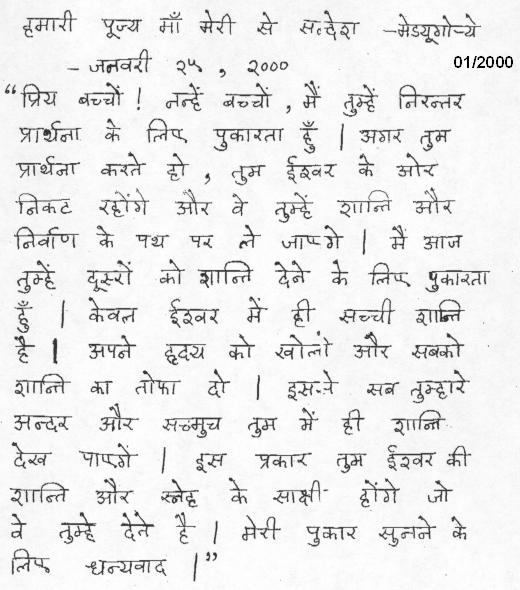 हमारी पूज्य माँ मेरी से सन्देश -मेडयूगोर्ये
- जनवरी २५, २०००
01/2000
“प्रिय बच्चों ! नन्हें बच्चों, मैं तुम्हें निरन्तर
प्रार्थना के लिए पुकारता हुँ | अगर तुम
प्रार्थना करते हो, तुम ईश्वर के ओर
निकट रहोंगे और वे तुम्हें शान्ति और
निर्वाण के पथ पर ले जाएगे | मैं आज
तुम्हें दूसरों को शान्ति देने के लिए पुकारता
हुँ | केवल ईश्वर में ही सच्ची शान्ति
है | अपने हृदय को खोलों और सबको
शान्ति का तोफा दो | सब तुम्हारे
अन्दर और सचमुच तुम में ही शान्ति
देख पाएगें | इस प्रकार तुम ईश्वर की
शान्ति और स्नेह के साक्षी होंगे जो
वे तुम्हे देते है | मेरी पुकार सुनने के
लिए धन्यवाद |”